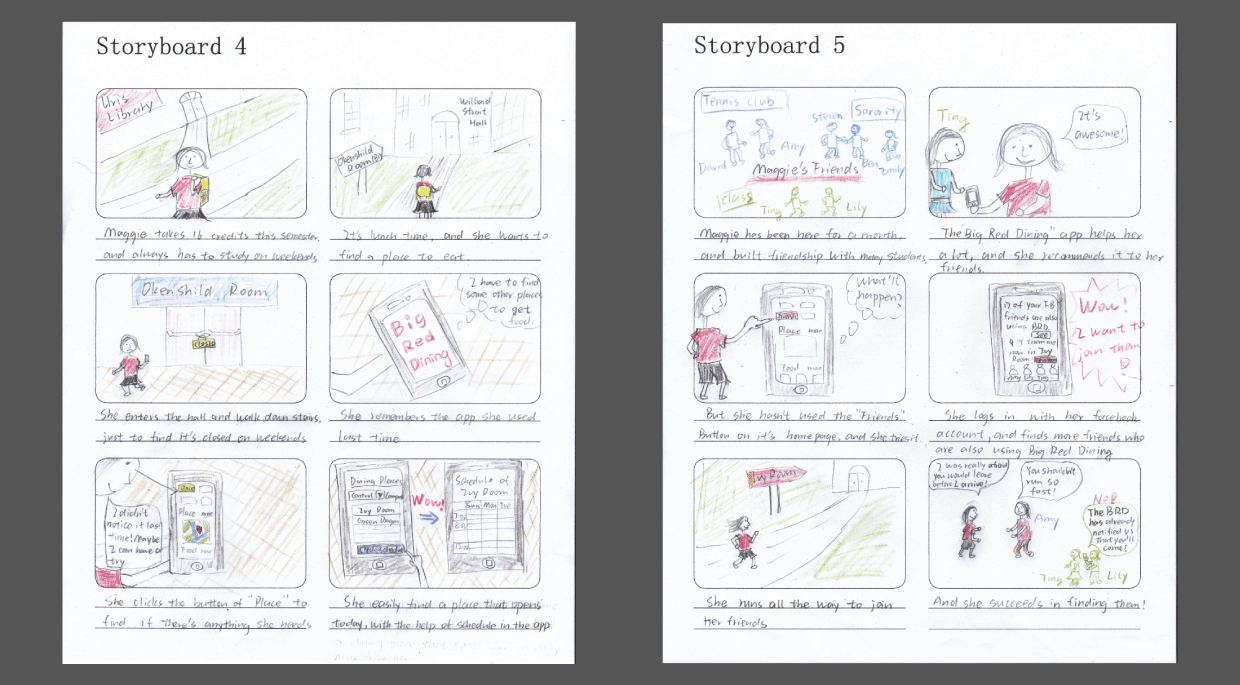 Storyboard 4
Uris
Library
Maggie takes 16 credits this semester,
and always has to study on weekends
Willard
Strait
Hall
Okenshild
Room
It's lunch time, and she wants to
find a place to eat.
Okenshild Room
closed
She enters the hall and walk down stairs,
just to find it's closed on weekends
I have to find
some other places
to get
food.
Big
Red
Dining
She remembers the app she used
last time
I didn't
notice it last
time! Maybe
I can have a
try
Place
Place
Food
She clicks the button of "Place" to
find if there's anything she needs
Dining Places
Central
Campus
Ivy Room
Green Dragon
Wow!
Schedule of
Ivy Room
Sun Mon Tue
She easily find a place that opens
today, with the help of schedule in the app
Storyboard 5
Tennis club
David
Amy
Steven
Sorority
Ben
Emily
Maggie's Friends
class
Ting
Lily
Maggie has been here for a month,
and built friendship with many students.
Ting
It's
awesome!
The "Big Red Dining" app helps her
a lot, and she recommends it to her
friends.
What'll
happen?
Place
Food
But she hasn't used the "Friends"
Button on it's homepage, and she tries it.
12 of your FB
friends are also
using BRD.
See
4 of them are
now in Ivy
Room
Wow!
I want to
join them
She logs in with her facebook
account, and finds more friends who
are also using Big Red Dining
Ivy Room
She runs all the way to join
her friends
I was really afraid
you would leave
before I arrive!
You shouldn't
run so
fast!
Amy
No!
The BRD
has already
notified us
that you'll
come!
Ting
Lily
And she succeeds in finding them!